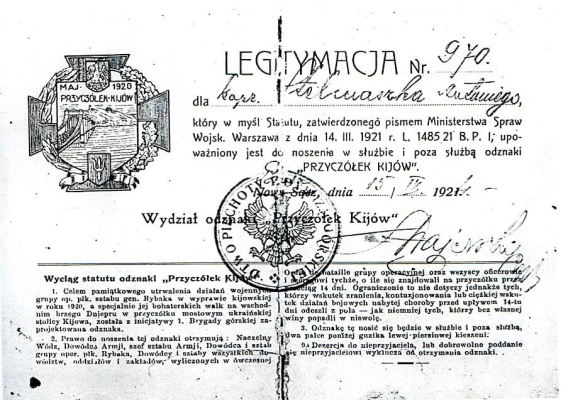 MAJ 1920
PRZYCZÓŁEK-KIJÓW
LEGITYMACJA Nr. 970.
dla kapr.
który w myśl Statutu, zatwierdzonego pismem Ministerstwa Spraw
Wojsk. Warszawa z dnia 14. III. 1921 r. L. 1485 21 B. P. I, upo-
ważniony jest do noszenia w służbie i poza służbą odznaki
„PRZYCZÓŁEK KIJÓW."
Nowy Sącz, dnia 15 / 1921
Wydział odznaki „Przyczółek Kijów"
D-WO PIECHOTY
Wyciąg statutu odznaki „Przyczółek Kijów"
1. Celem pamiątkowego utrwalenia działań wojennych
grupy op. płk. sztabu gen. Rybaka w wyprawie kijowskiej
w roku 1920, a specjalnie jej bohaterskich walk na wschod-
nim brzegu Dniepru w przyczółku mostowym ukraińskiej
Kijowa, została z inicjatywy 1. Brygady górskiej za-
projektowana odznaka.
2. Prawo do noszenia tej odznaki otrzymują: Naczelny
Wódz, Dowódca Armji, szef sztabu Armji, Dowódca i sztab
grupy oper. płk. Rybaka, Dowódcy i sztaby wszystkich do-
wództw, oddziałów i zakładów, wyliczonych w ówczesnej
Ordre de bataille grupy operacyjnej oraz wszyscy oficerowie
i szeregowi tychże, o ile się znajdowali na przyczółku
przeciąg 14 dni. Ograniczenie to nie dotyczy jednakże tych,
którzy wskutek zranienia, kontuzjonowania lub ciężkiej wsku-
tek działań bojowych nabytej choroby przed upływem 14-tu
dni odeszli z pola — jak niemniej tych, którzy bez własnej
winy popadli w niewolę.
3. Odznakę tę nosić się będzie w służbie i poza służbą,
dwa palce poniżej guzika lewej-piersiowej kieszeni.
Dezercja do nieprzyjaciela, lub dobrowolne poddanie
się nieprzyjacielowi wyklucza od otrzymania odznaki.